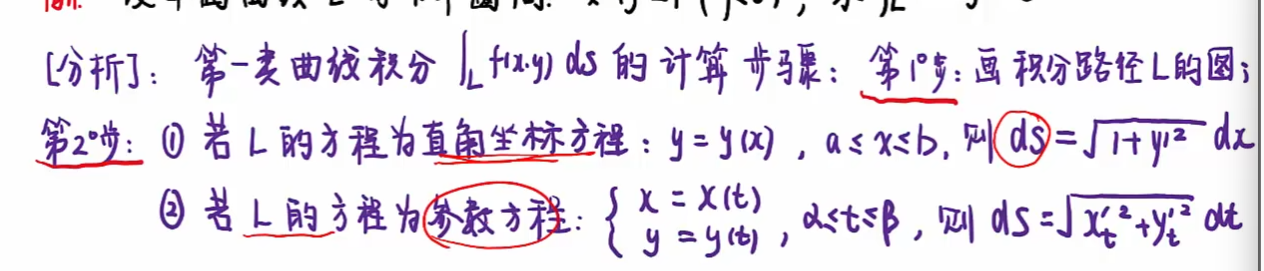 [分析]: 第一类曲线积分 ∫_L f(x,y) ds 的计算步骤: 第1°步: 画积分路径L的图;
第2°步: ① 若 L 的方程为直角坐标方程: y = y(x), a ≤ x ≤ b, 则 ds = √(1+y'²) dx
② 若 L 的方程为参数方程: { x = x(t) y = y(t), α≤t≤β, 则 ds = √(x't²+y't²) dt